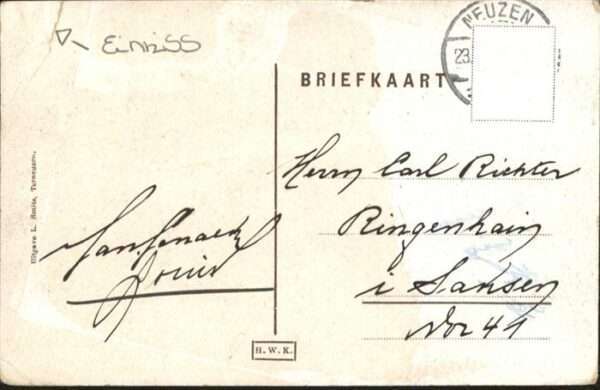 Einriss
NEUZEN
23
BRIEFKAART
Herrn Carl Richter
Ringenhain
i Saksen
No 41
Louis
Uitgave L. Smits, Terneuzen.
H. W. K.